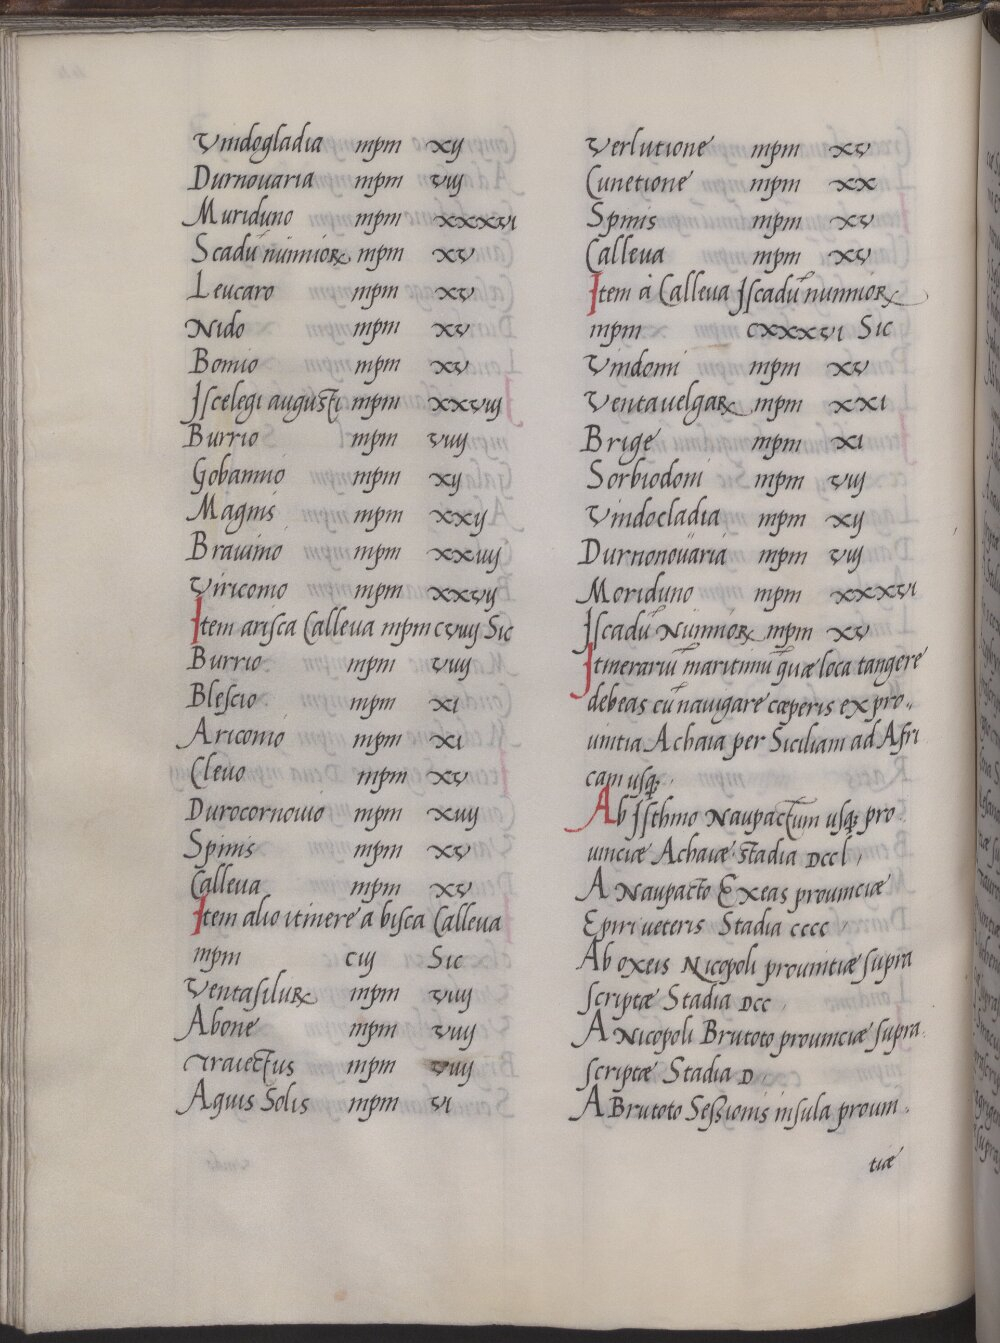 Vindogladia mpm xij
Durnouaria mpm viij
Muriduno mpm xxxvi
Scadū nūnnioꝝ mpm xv
Leucaro mpm xv
Nido mpm xv
Bomio mpm xv
Iscelegi augusti mpm xxviij
Burrio mpm viiij
Gobannio mpm xij
Magnis mpm xxij
Brauinio mpm xxiiij
Viriconio mpm xxvij
Item arisca Calleua mpm cviiij Sic
Burrio mpm viiij
Blescio mpm xi
Ariconio mpm xi
Cleuo mpm xv
Durocornouio mpm xiiij
Spinis mpm xv
Calleua mpm xv
Item alio itinere a bisca Calleua
mpm ciij Sic
Ventasiluꝝ mpm viiij
Abone mpm viiij
Traiectus mpm viiij
Aquis Solis mpm vi
Verlutione mpm xv
Cunetione mpm xx
Spinis mpm xv
Calleua mpm xv
Item à Calleua Iscadū nunnioꝝ
mpm cxxxvi Sic
Vindomi mpm xv
Ventauelgaꝝ mpm xxi
Brige mpm xi
Sorbiodoni mpm viij
Vindocladia mpm xij
Durnonouaria mpm viij
Moriduno mpm xxxvi
Iscadū Nunnioꝝ mpm xv
Itinerariū maritimū quæ loca tangere
debeas cū nauigare cœperis ex pro-
uintia Achaia per Siciliam ad Afri
cam usq;
Ab Isthmo Naupactum usq; pro
uinciæ Achaiæ stadia DCCl
A Naupacto Exeas prouinciæ
Epiri ueteris Stadia cccc
Ab oxeis Nicopoli prouintiæ supra
scriptæ Stadia DCC
A Nicopoli Brutoto prouinciæ supra
scriptæ Stadia D
A Brutoto Sessionis insula prouin-
tiæ